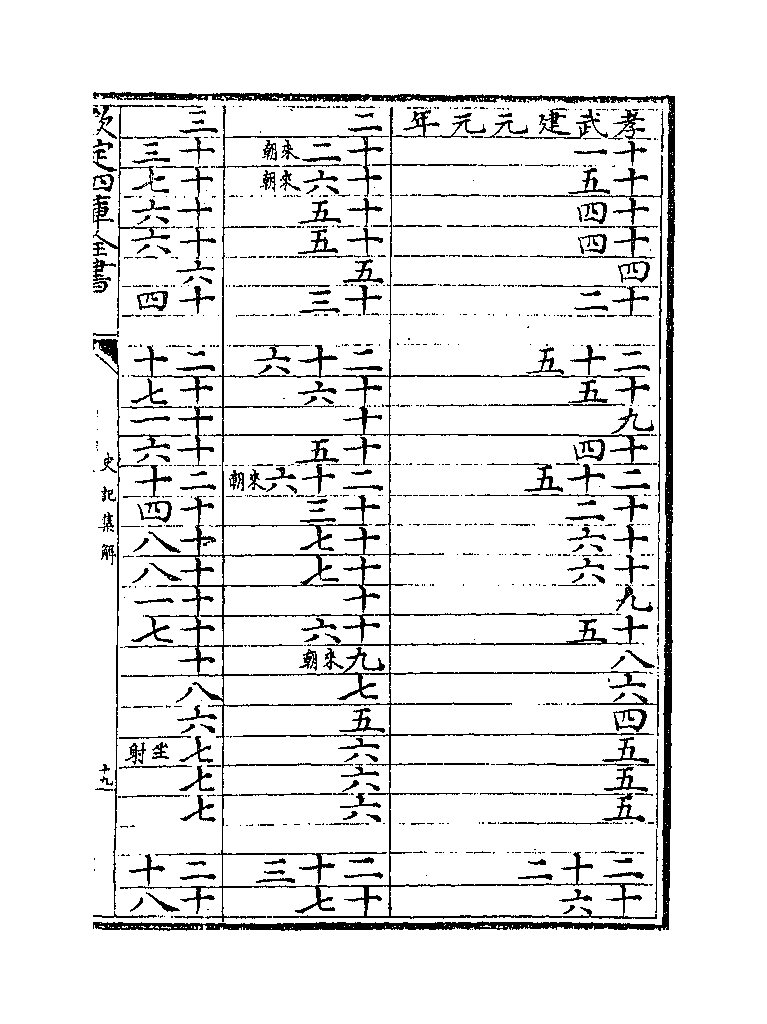 孝武建元元年
十一
十五
十四
十四
四
十二
二十五
十五
九
十四
二十五
十二
十六
十六
九
十五
八
六
四
五
五
五
二十二
十六
二
十二來朝
十六來朝
十五
十五
五
十三
二十六
十六
十
十五
二十六來朝
十三
十七
十七
十
十六
九來朝
七
五
六
六
六
二十三
十七
三
十三
十七
十六
十六
六
十四
二十
十七
十一
十六
二十
十四
十八
十八
十一
十七
十
八
六
七坐射
七
七
二十
十八
欽定四庫全書
史記集解
十九